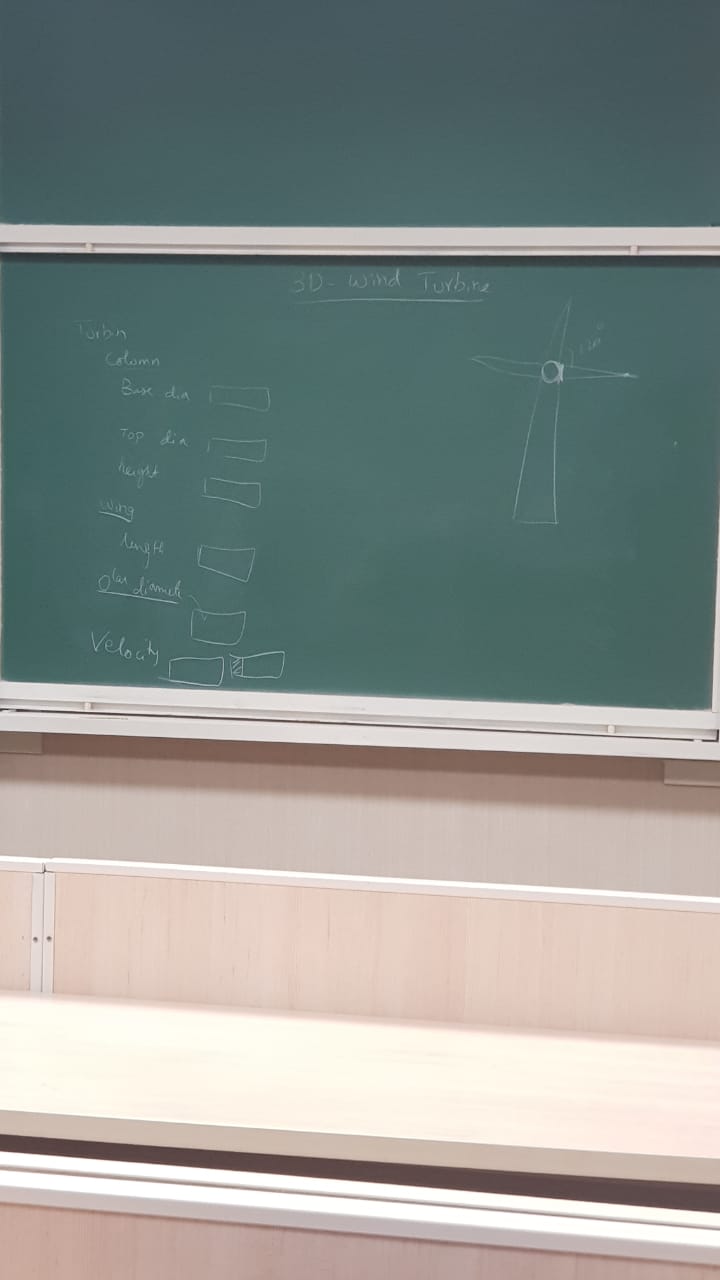 3D- Wind Turbine
Turbin
Column
Base dia
Top dia
height
wing
length
diamete
Velocity
120°